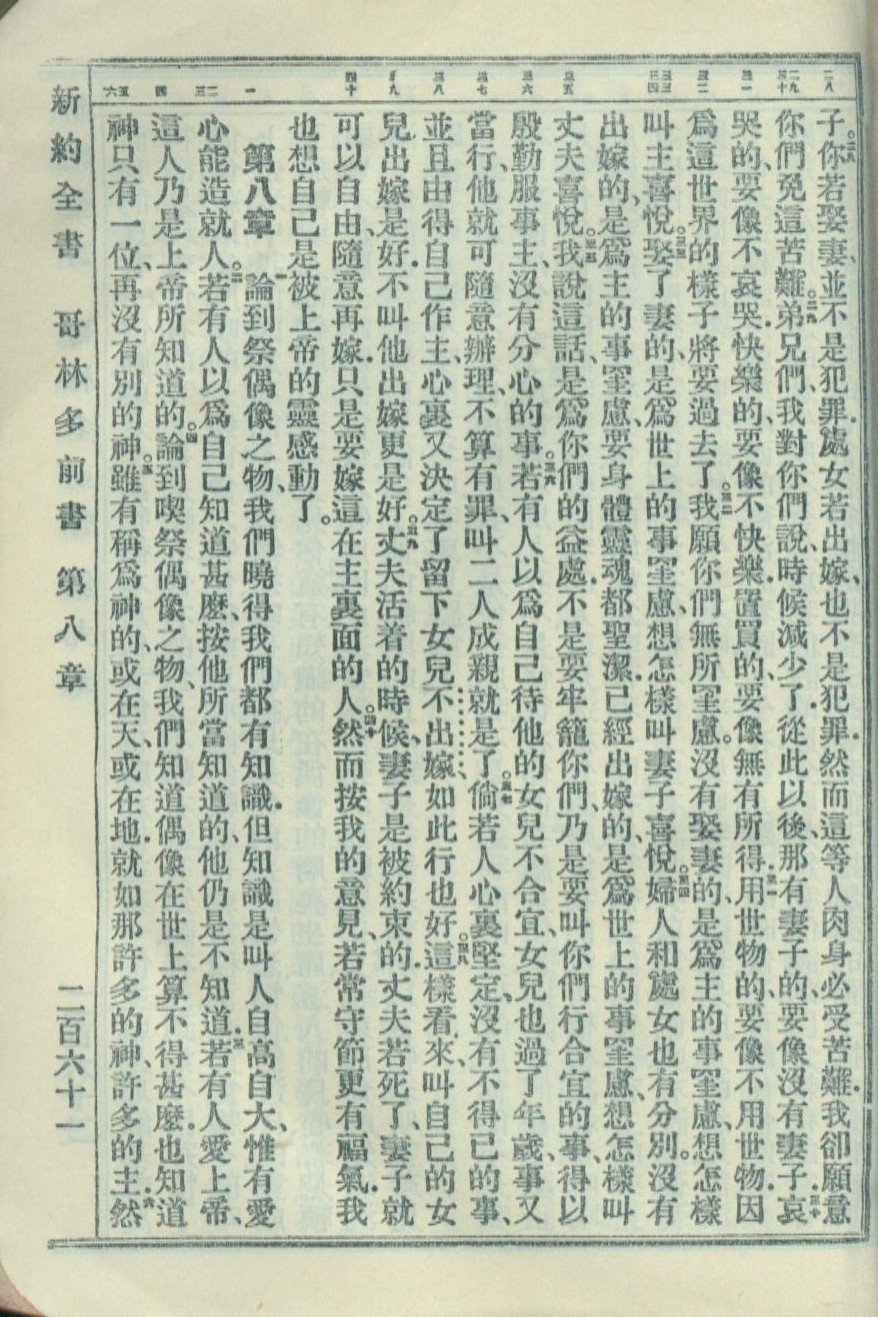 二八 二九 三十 三一 三二 三三 三四 三五 三六 三七 三八 三九 四十 一 二 三 四 五 六
子。二八你若娶妻、並不是犯罪.處女若出嫁、也不是犯罪.然而這等人肉身必受苦難.我卻願意
你們免這苦難。二九弟兄們、我對你們說、時候減少了.從此以後、那有妻子的、要像沒有妻子.三十哀
哭的、要像不哀哭.快樂的、要像不快樂.置買的、要像無有所得.三一用世物的、要像不用世物.因
爲這世界的樣子將要過去了。三二我願你們無所罣慮。沒有娶妻的、是爲主的事罣慮、想怎樣
叫主喜悅。三三娶了妻的、是爲世上的事罣慮、想怎樣叫妻子喜悅。三四婦人和處女也有分別。沒有
出嫁的、是爲主的事罣慮、要身體靈魂都聖潔.已經出嫁的、是爲世上的事罣慮、想怎樣叫
丈夫喜悅。三五我說這話、是爲你們的益處.不是要牢籠你們、乃是要叫你們行合宜的事、得以
殷勤服事主、沒有分心的事。三六若有人以爲自己待他的女兒不合宜、女兒也過了年歲、事又
當行、他就可隨意辦理、不算有罪、叫二人成親就是了。三七倘若人心裏堅定、沒有不得已的事、
並且由得自己作主、心裏又決定了留下女兒不出嫁、如此行也好。三八這樣看來、叫自己的女
兒出嫁是好、不叫他出嫁更是好。三九丈夫活着的時候、妻子是被約束的.丈夫若死了、妻子就
可以自由、隨意再嫁.只是要嫁這在主裏面的人。四十然而按我的意見、若常守節更有福氣.我
也想自己是被上帝的靈感動了。
第八章 一論到祭偶像之物、我們曉得我們都有知識.但知識是叫人自高自大、惟有愛
心能造就人。二若有人以爲自己知道甚麽、按他所當知道的、他仍是不知道.三若有人愛上帝、
這人乃是上帝所知道的。四論到喫祭偶像之物、我們知道偶像在世上算不得甚麽.也知道
神只有一位、再沒有別的神。五雖有稱爲神的、或在天、或在地.就如那許多的神、許多的主.六然
新約全書 哥林多前書 第八章 二百六十一